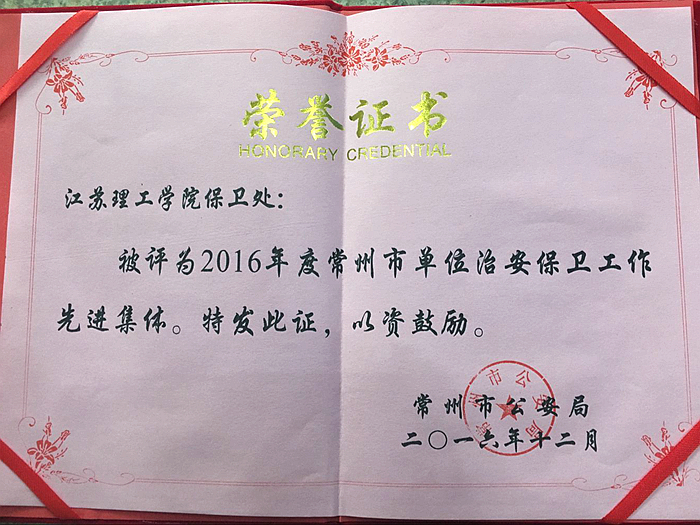 荣誉证书
HONORARY CREDENTIAL
江苏理工学院保卫处：
被评为2016年度常州市单位治安保卫工作
先进集体。特发此证，以资鼓励。
常州市公安局
二〇一六年十二月
常州市公安局